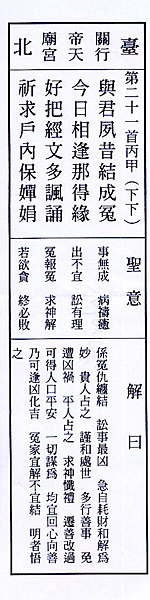 臺
關帝廟
行天宮
北
第二十一首丙甲(下下)
與君夙昔結成冤
今日相逢那得緣
好把經文多諷誦
祈求戶內保嬋娟
聖意
事無成 病禱癒
出不宜 訟有理
冤報冤 求神解
若欲貪 終必敗
解曰
係冤仇纏結 訟事最凶 急自耗財和解為
妙 貴人占之 謹和處世 多行善事 免
遭凶禍 平人占之 求神懺禮 遷善改過
可得人口平安 一切謀為 均宜回心向善
乃可逢凶化吉 冤家宜解不宜結 明者悟
之